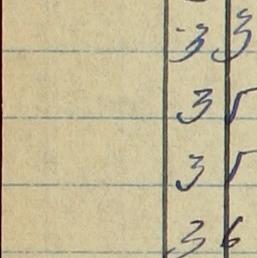 33
35
35
36